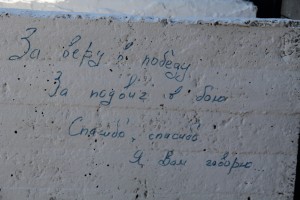 За веру в победу
За подвиг в бою
Спасибо, спасибо
Я Вам говорю...